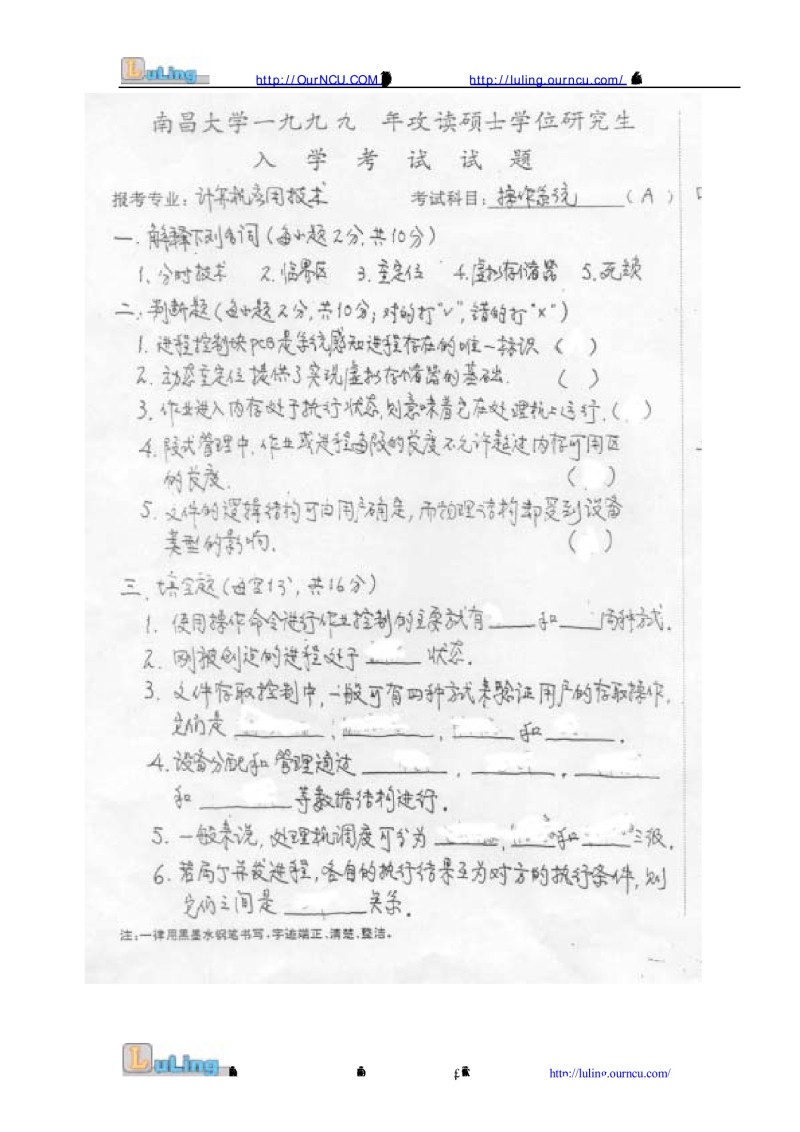 LuLing http://OurNCU.COM http://luling.ourncu.com/
南昌大学一九九九 年攻读硕士学位研究生
入学考试试题
报考专业：计算机应用技术 考试科目：操作系统 （A）
一．解释下列名词（每小题2分，共10分）
1、分时技术 2．临界区 3．重定位 4．虚拟存储器 5．死锁
二．判断题（每小题2分，共10分；对的打“√”，错的打“×”）
1．进程控制块PCB是系统感知进程存在的唯一标识（ ）
2．动态重定位提供了实现虚拟存储器的基础．（ ）
3．作业进入内存处于执行状态，则意味着它在处理机上运行．（ ）
4．段式管理中，作业或进程每段的长度不允许超过内存可用区
的长度．（ ）
5．文件的逻辑结构可由用户确定，而物理结构却受到设备
类型的影响．（ ）
三．填空题（每空1分，共16分）
1．使用操作命令进行作业控制的主要方式有____和____两种方式．
2．刚被创造的进程处于____状态．
3．文件存取控制中，一般可有四种方式来验证用户的存取操作，
它们是____，____，____和____．
4．设备分配和管理通过____，____，____
和____等数据结构进行．
5．一般来说，处理机调度可分为____，____和____三级．
6．若两个并发进程，各自的执行结果互为对方的执行条件，则
它们之间是____关系．
注：一律用黑墨水钢笔书写，字迹端正、清楚、整洁。
LuLing http://luling.ourncu.com/